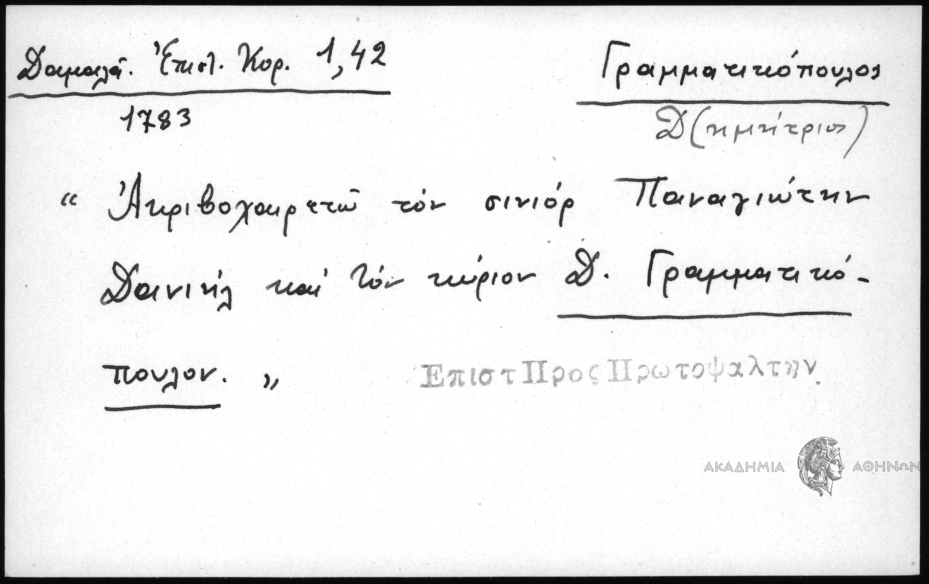 Δαμαλᾶ. Ἐπιστ. Κορ. 1,42
Γραμματικόπουλος
1783
Δ(ημήτριος)
“ Ἀκριβοχαιρετῶ τόν σινιόρ Παναγιώτην
Δανιήλ καί τόν κύριον Δ. Γραμματικό-
πουλον. „
Επιστ Προς Πρωτοψαλτην.
ΑΚΑΔΗΜΙΑ ΑΘΗΝΩΝ